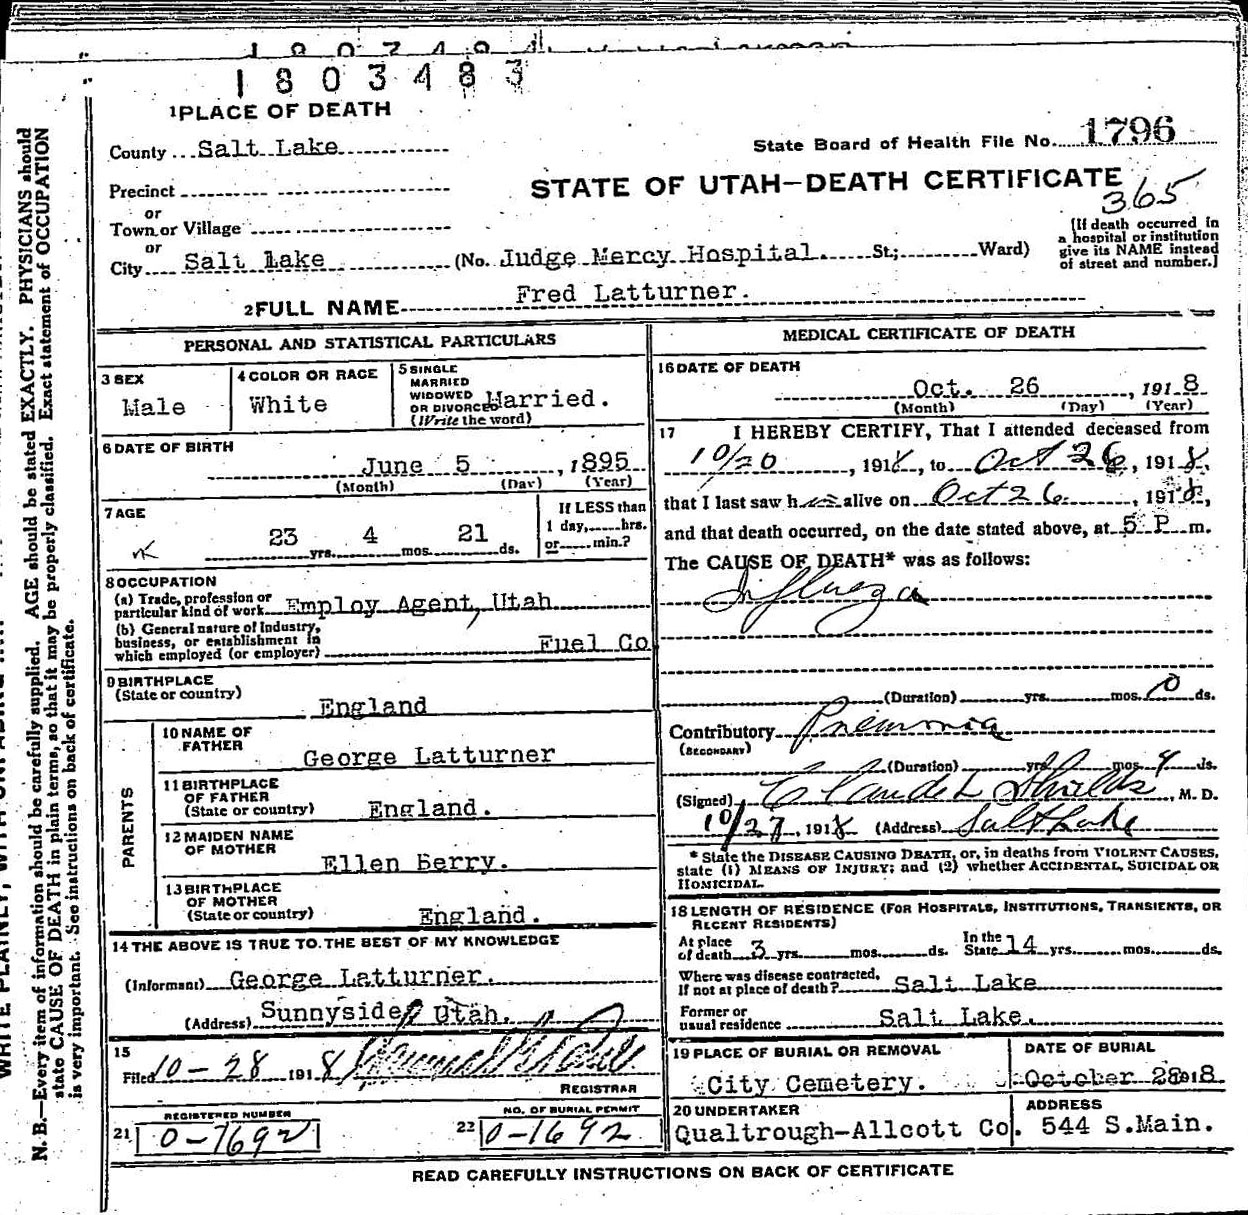 1803483
1 PLACE OF DEATH
County Salt Lake
State Board of Health File No. 1796
Precinct
or
STATE OF UTAH—DEATH CERTIFICATE
365
Town or Village
or
City Salt Lake (No. Judge Mercy Hospital St; Ward)
[If death occurred in
a hospital or institution
give its NAME instead
of street and number.]
2 FULL NAME Fred Latturner.
PERSONAL AND STATISTICAL PARTICULARS
3 SEX
Male
4 COLOR OR RACE
White
5 SINGLE
MARRIED
WIDOWED
OR DIVORCED Married.
(Write the word)
6 DATE OF BIRTH
June 5, 1895
(Month) (Day) (Year)
7 AGE
23 yrs. 4 mos. 21 ds.
If LESS than
1 day, hrs.
or min.?
8 OCCUPATION
(a) Trade, profession or
particular kind of work Employ Agent, Utah
(b) General nature of Industry,
business, or establishment in
which employed (or employer) Fuel Co
9 BIRTHPLACE
(State or country)
England
PARENTS
10 NAME OF
FATHER
George Latturner
11 BIRTHPLACE
OF FATHER
(State or country) England.
12 MAIDEN NAME
OF MOTHER
Ellen Berry.
13 BIRTHPLACE
OF MOTHER
(State or country) England.
14 THE ABOVE IS TRUE TO THE BEST OF MY KNOWLEDGE
(Informant) George Latturner.
(Address) Sunnyside, Utah.
15
Filed 10-28 1918
REGISTRAR
REGISTERED NUMBER
21 0-1692
NO. OF BURIAL PERMIT
22 0-1692
MEDICAL CERTIFICATE OF DEATH
16 DATE OF DEATH
Oct. 26, 1918
(Month) (Day) (Year)
17 I HEREBY CERTIFY, That I attended deceased from
10/20, 1918, to Oct 26, 1918,
that I last saw him alive on Oct 26, 1918,
and that death occurred, on the date stated above, at 5 P m.
The CAUSE OF DEATH* was as follows:
Influenza
(Duration) yrs. mos. 10 ds.
Contributory Pneumonia
(SECONDARY)
(Duration) yrs. mos. 4 ds.
(Signed) Claude L Shields, M. D.
10/27, 1918 (Address) Salt Lake
* State the DISEASE CAUSING DEATH, or, in deaths from VIOLENT CAUSES,
state (1) MEANS OF INJURY; and (2) whether ACCIDENTAL, SUICIDAL OR
HOMICIDAL.
18 LENGTH OF RESIDENCE (FOR HOSPITALS, INSTITUTIONS, TRANSIENTS, OR
RECENT RESIDENTS)
At place
of death 3 yrs. mos. ds.
In the
State 14 yrs. mos. ds.
Where was disease contracted,
If not at place of death? Salt Lake
Former or
usual residence Salt Lake.
19 PLACE OF BURIAL OR REMOVAL
City Cemetery.
DATE OF BURIAL
October 28 1918
20 UNDERTAKER
Qualtrough-Allcott Co.
ADDRESS
544 S.Main.
READ CAREFULLY INSTRUCTIONS ON BACK OF CERTIFICATE
N. B.—Every item of information should be carefully supplied. AGE should be stated EXACTLY. PHYSICIANS should
state CAUSE OF DEATH in plain terms, so that it may be properly classified. Exact statement of OCCUPATION
is very important. See instructions on back of certificate.